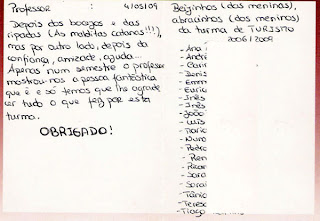 Professor : 4/05/09
Depois dos bocejos e das
ripadas (As malditas catanas!!!),
mas por outro lado, depois da
confiança, amizade, ajuda...
Apenas num semestre o professor
mostrou-nos a pessoa fantástica
que é e só temos que lhe agrade
cer tudo o que fez por esta
turma.
OBRIGADO!
Beijinhos (das meninas),
abracinhos (dos meninos)
da turma de TURISMO
2006/2009
- Ana
- André
- Denis
- Inês
- Inês
- João
- Luís
- Nuno
- Pedro
- Ricar
- Sara
- Sarai
- Tânia
- Teresa
- Tiago